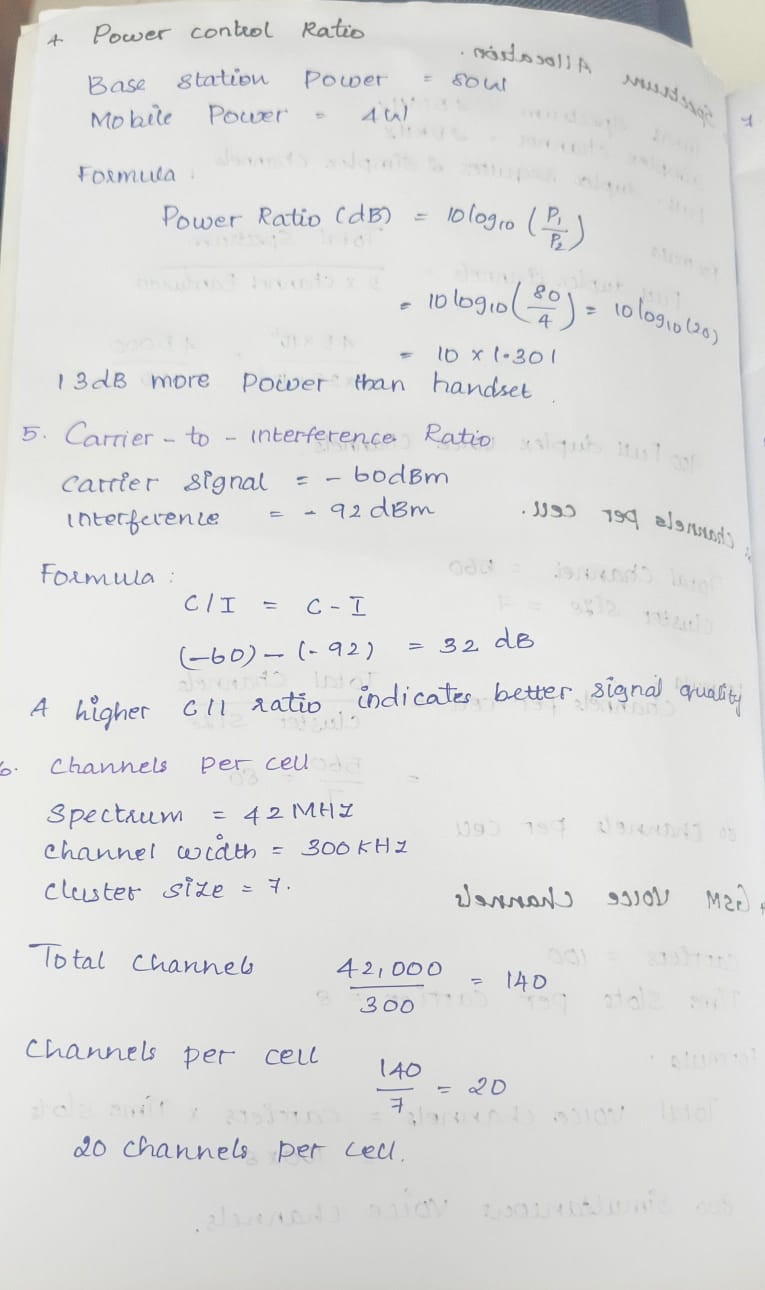 4 Power control Ratio
Base station Power = 80W
Mobile Power = 4W
Formula :
Power Ratio (dB) = 10log10 (P1/P2)
= 10log10(80/4) = 10log10(20)
= 10 x 1.301
13dB more power than handset.
5. Carrier - to - interference Ratio
Carrier signal = - 60dBm
interference = - 92dBm
Formula :
C/I = C - I
(-60) - (-92) = 32 dB
A higher C/I ratio indicates better signal quality
6. Channels per cell
Spectrum = 42MHz
Channel width = 300KHz
Cluster size = 7.
Total channels 42,000/300 = 140
Channels per cell 140/7 = 20
20 channels per cell.